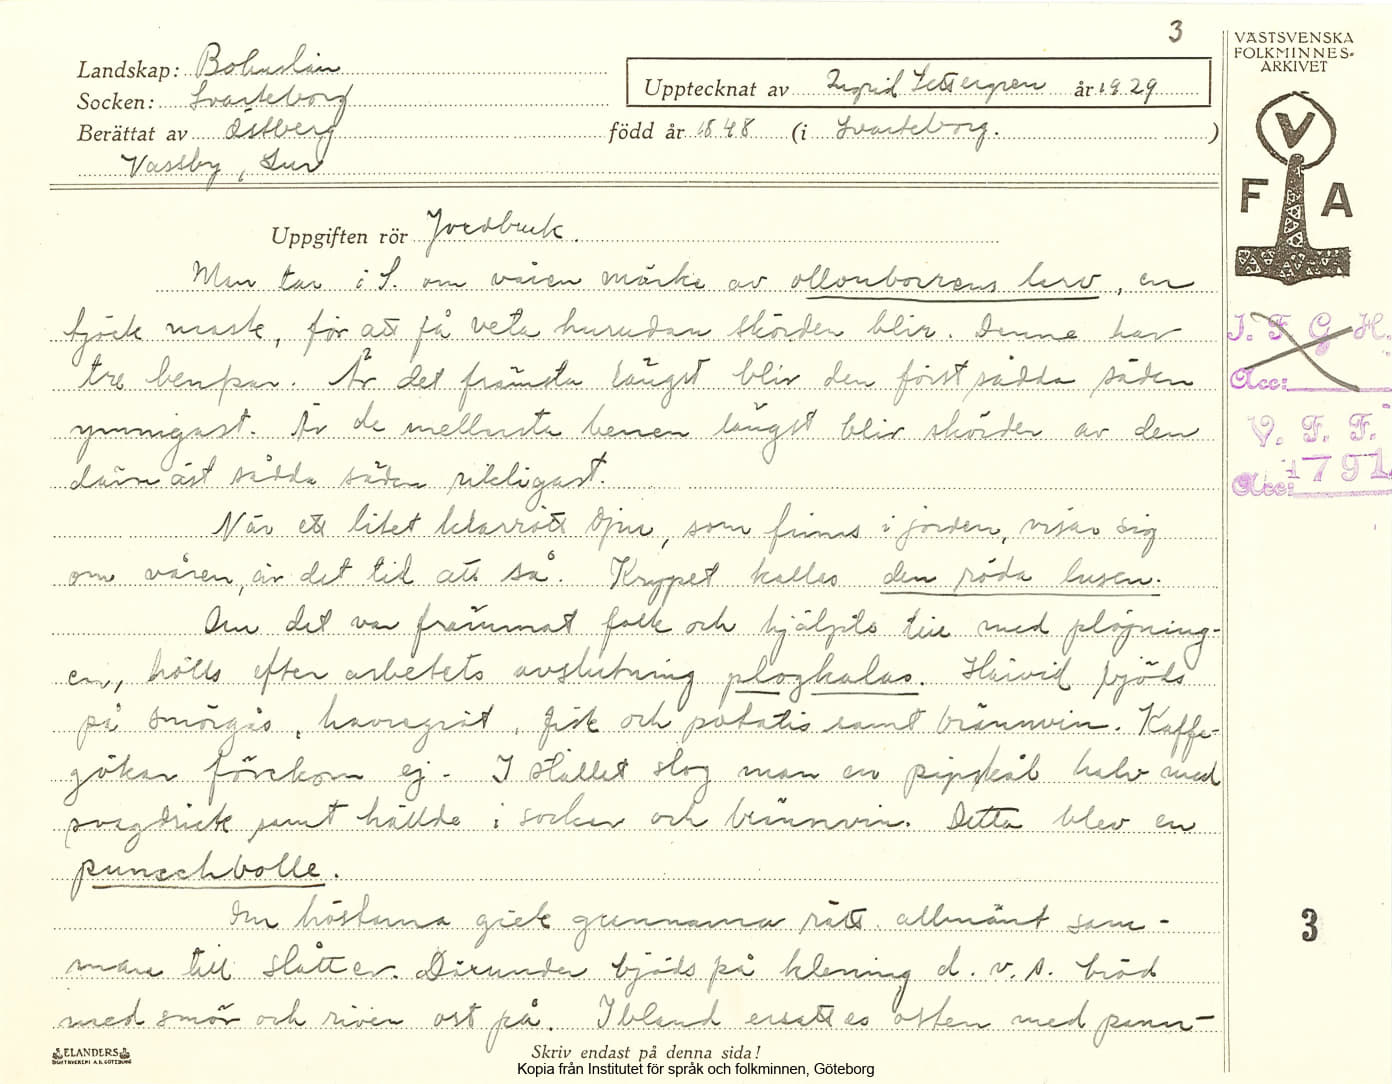 3
Landskap: Bohuslän
Socken: Svarteborg
Upptecknat av Ingrid Settergren år 1929
Berättat av Östberg född år 1848 (i Svarteborg. )
Vassby, Sur
VÄSTSVENSKA
FOLKMINNES-
ARKIVET
V
F A
Uppgiften rör Jordbruk.
Man tar i S. om våren märke av ollonborrens larv, en
tjock mask, för att få veta hurudan skörden blir. Denne har
tre benpar. Är det främsta längst blir den först sådda säden
ymnigast. Är de mellersta benen längst blir skörden av den
därnäst sådda säden rikligast.
När ett litet klarrött djur, som finns i jorden, visar sig
om våren, är det tid att så. Krypet kallas den röda lusen.
Om det var främmat folk och hjälpte till med plöjning-
en, hölls efter arbetets avslutning plogkalas. Härvid bjöds
på smörgås, havregröt, fisk och potatis samt brännvin. Kaffe-
gökar förekom ej. I stället slog man en pipskål halv med
svagdricka samt hällde i socker och brännvin. Detta blev en
punschbolle.
Om höstarna gick grannarna rätt allmänt sam-
man till slåtter. Därunder bjöds på klening d. v. s. bröd
med smör och riven ost på. Ibland ersattes osten med pann-
J. F. G. H.
Acc:
V. F. F.
Acc: 1791
3
ELANDERS
BOKTRYCKERI A.B. GÖTEBORG
Skriv endast på denna sida!
Kopia från Institutet för språk och folkminnen, Göteborg